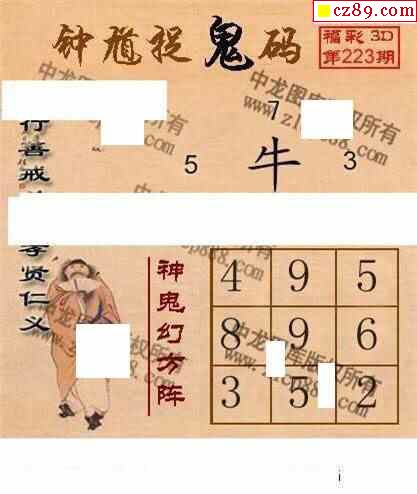 cz89.com
钟馗捉鬼码
福彩3D
第223期
中龙图库版权所有
行善戒
孝贤仁义
7
5 牛 3
神鬼幻方阵
4 9 5
8 9 6
3 5 2
i